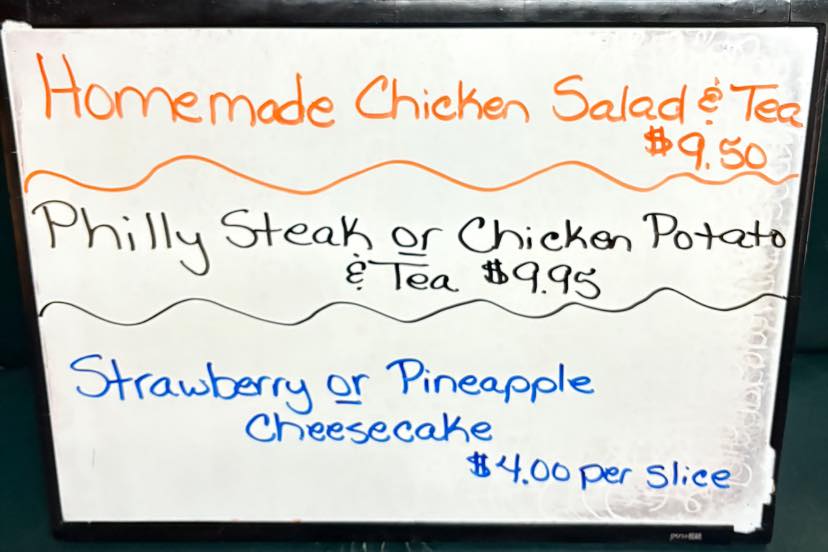 Homemade Chicken Salad & Tea
$9.50
Philly Steak or Chicken Potato
& Tea $9.95
Strawberry or Pineapple
Cheesecake
$4.00 per slice